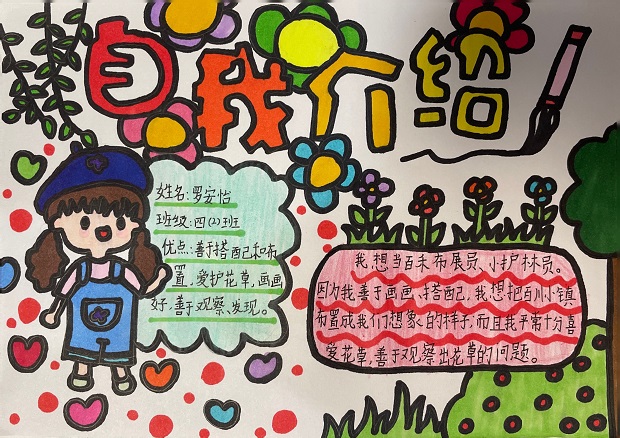 自我介绍
姓名:罗安怡
班级:四(2)班
优点:善于搭配和布
置,爱护花草,画画
好,善于观察、发现。
我想当百禾布展员、小护林员。
因为我善于画画、搭配,我想把百川小镇
布置成我们想象的样子,而且我平常十分喜
爱花草,善于观察出花草的问题。